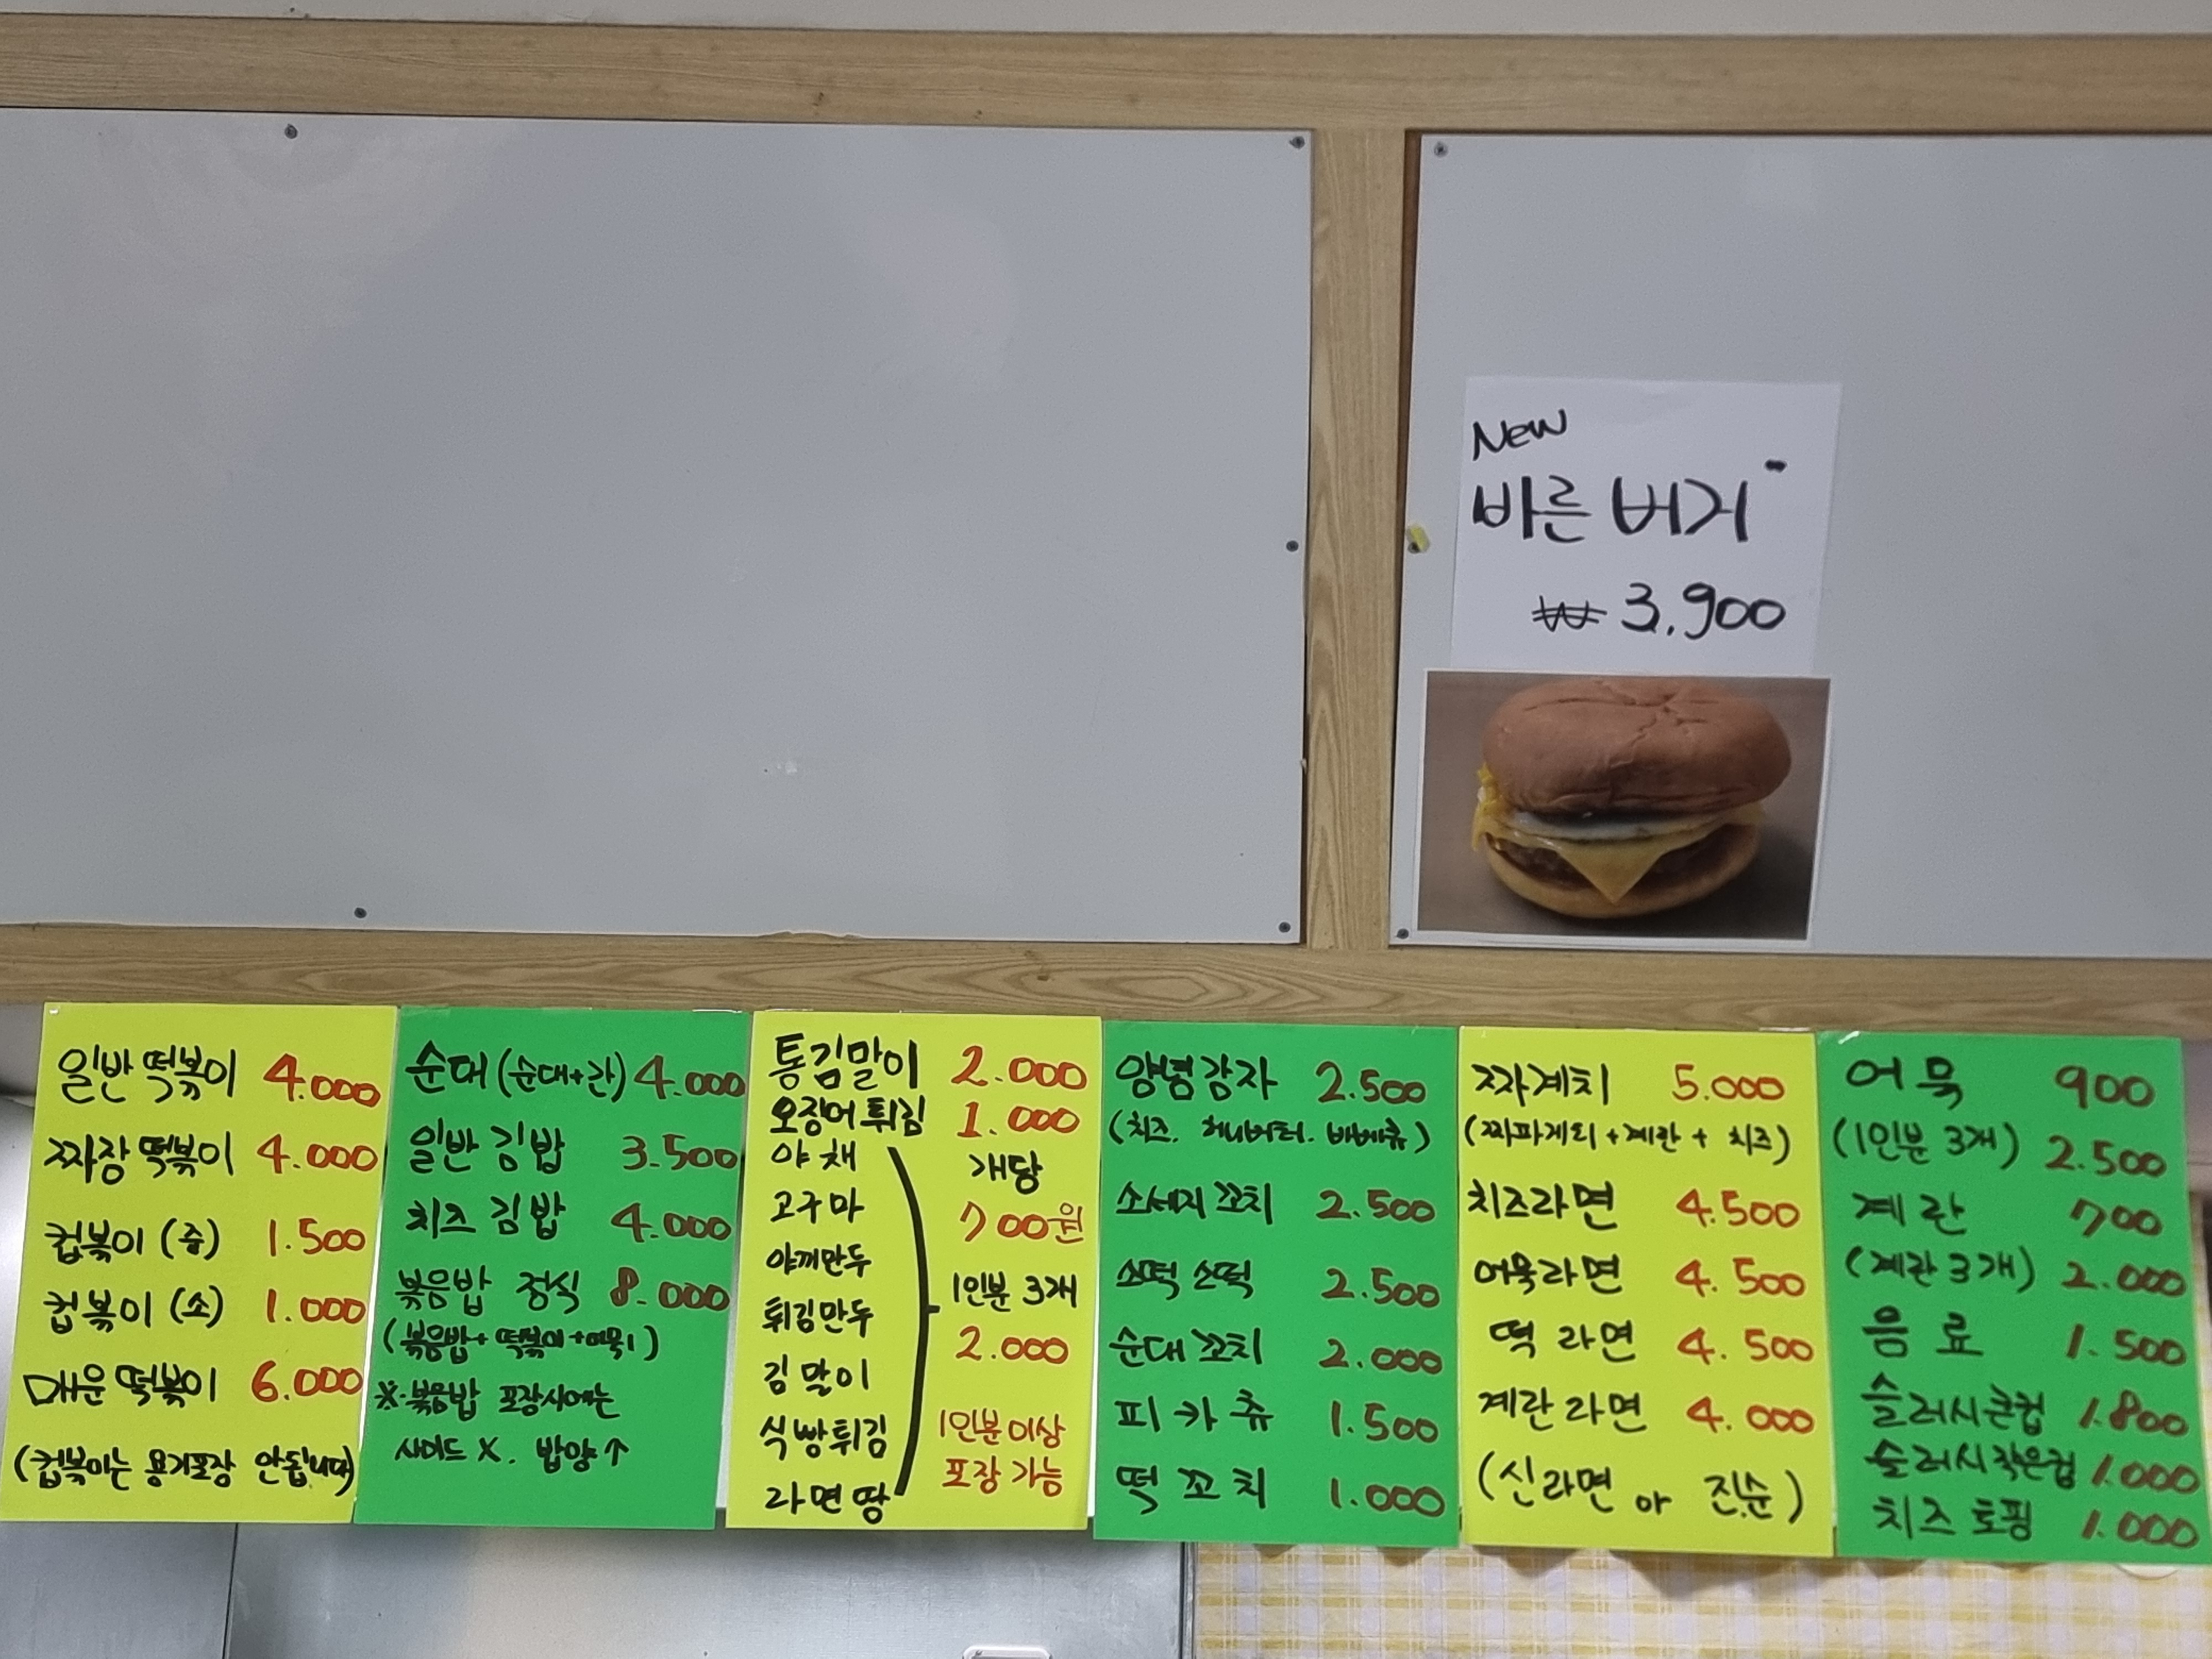 New
바른 버거
₩ 3.900
일반 떡볶이 4.000
짜장 떡볶이 4.000
컵볶이 (중) 1.500
컵볶이 (소) 1.000
매운 떡볶이 6.000
(컵볶이는 용기포장 안됩니다)
순대 (순대+간) 4.000
일반 김밥 3.500
치즈 김밥 4.000
볶음밥 정식 8.000
(볶음밥+떡볶이+어묵1)
※.볶음밥 포장시에는
사이드 X. 밥양↑
통김말이 2.000
오징어튀김 1.000
야채
고구마
야끼만두
튀김만두
김말이
식빵튀김
라면땅
개당
700원
1인분 3개
2.000
1인분이상
포장 가능
양념감자 2.500
(치즈. 허니버터. 바베큐)
소세지 꼬치 2.500
소떡 소떡 2.500
순대 꼬치 2.000
피카츄 1.500
떡꼬치 1.000
짜계치 5.000
(짜파게티+계란+치즈)
치즈라면 4.500
어묵라면 4.500
떡 라면 4.500
계란 라면 4.000
(신라면 or 진순)
어묵 900
(1인분 3개) 2.500
계란 700
(계란 3개) 2.000
음료 1.500
슬러시큰컵 1.800
슬러시작은컵 1.000
치즈 토핑 1.000